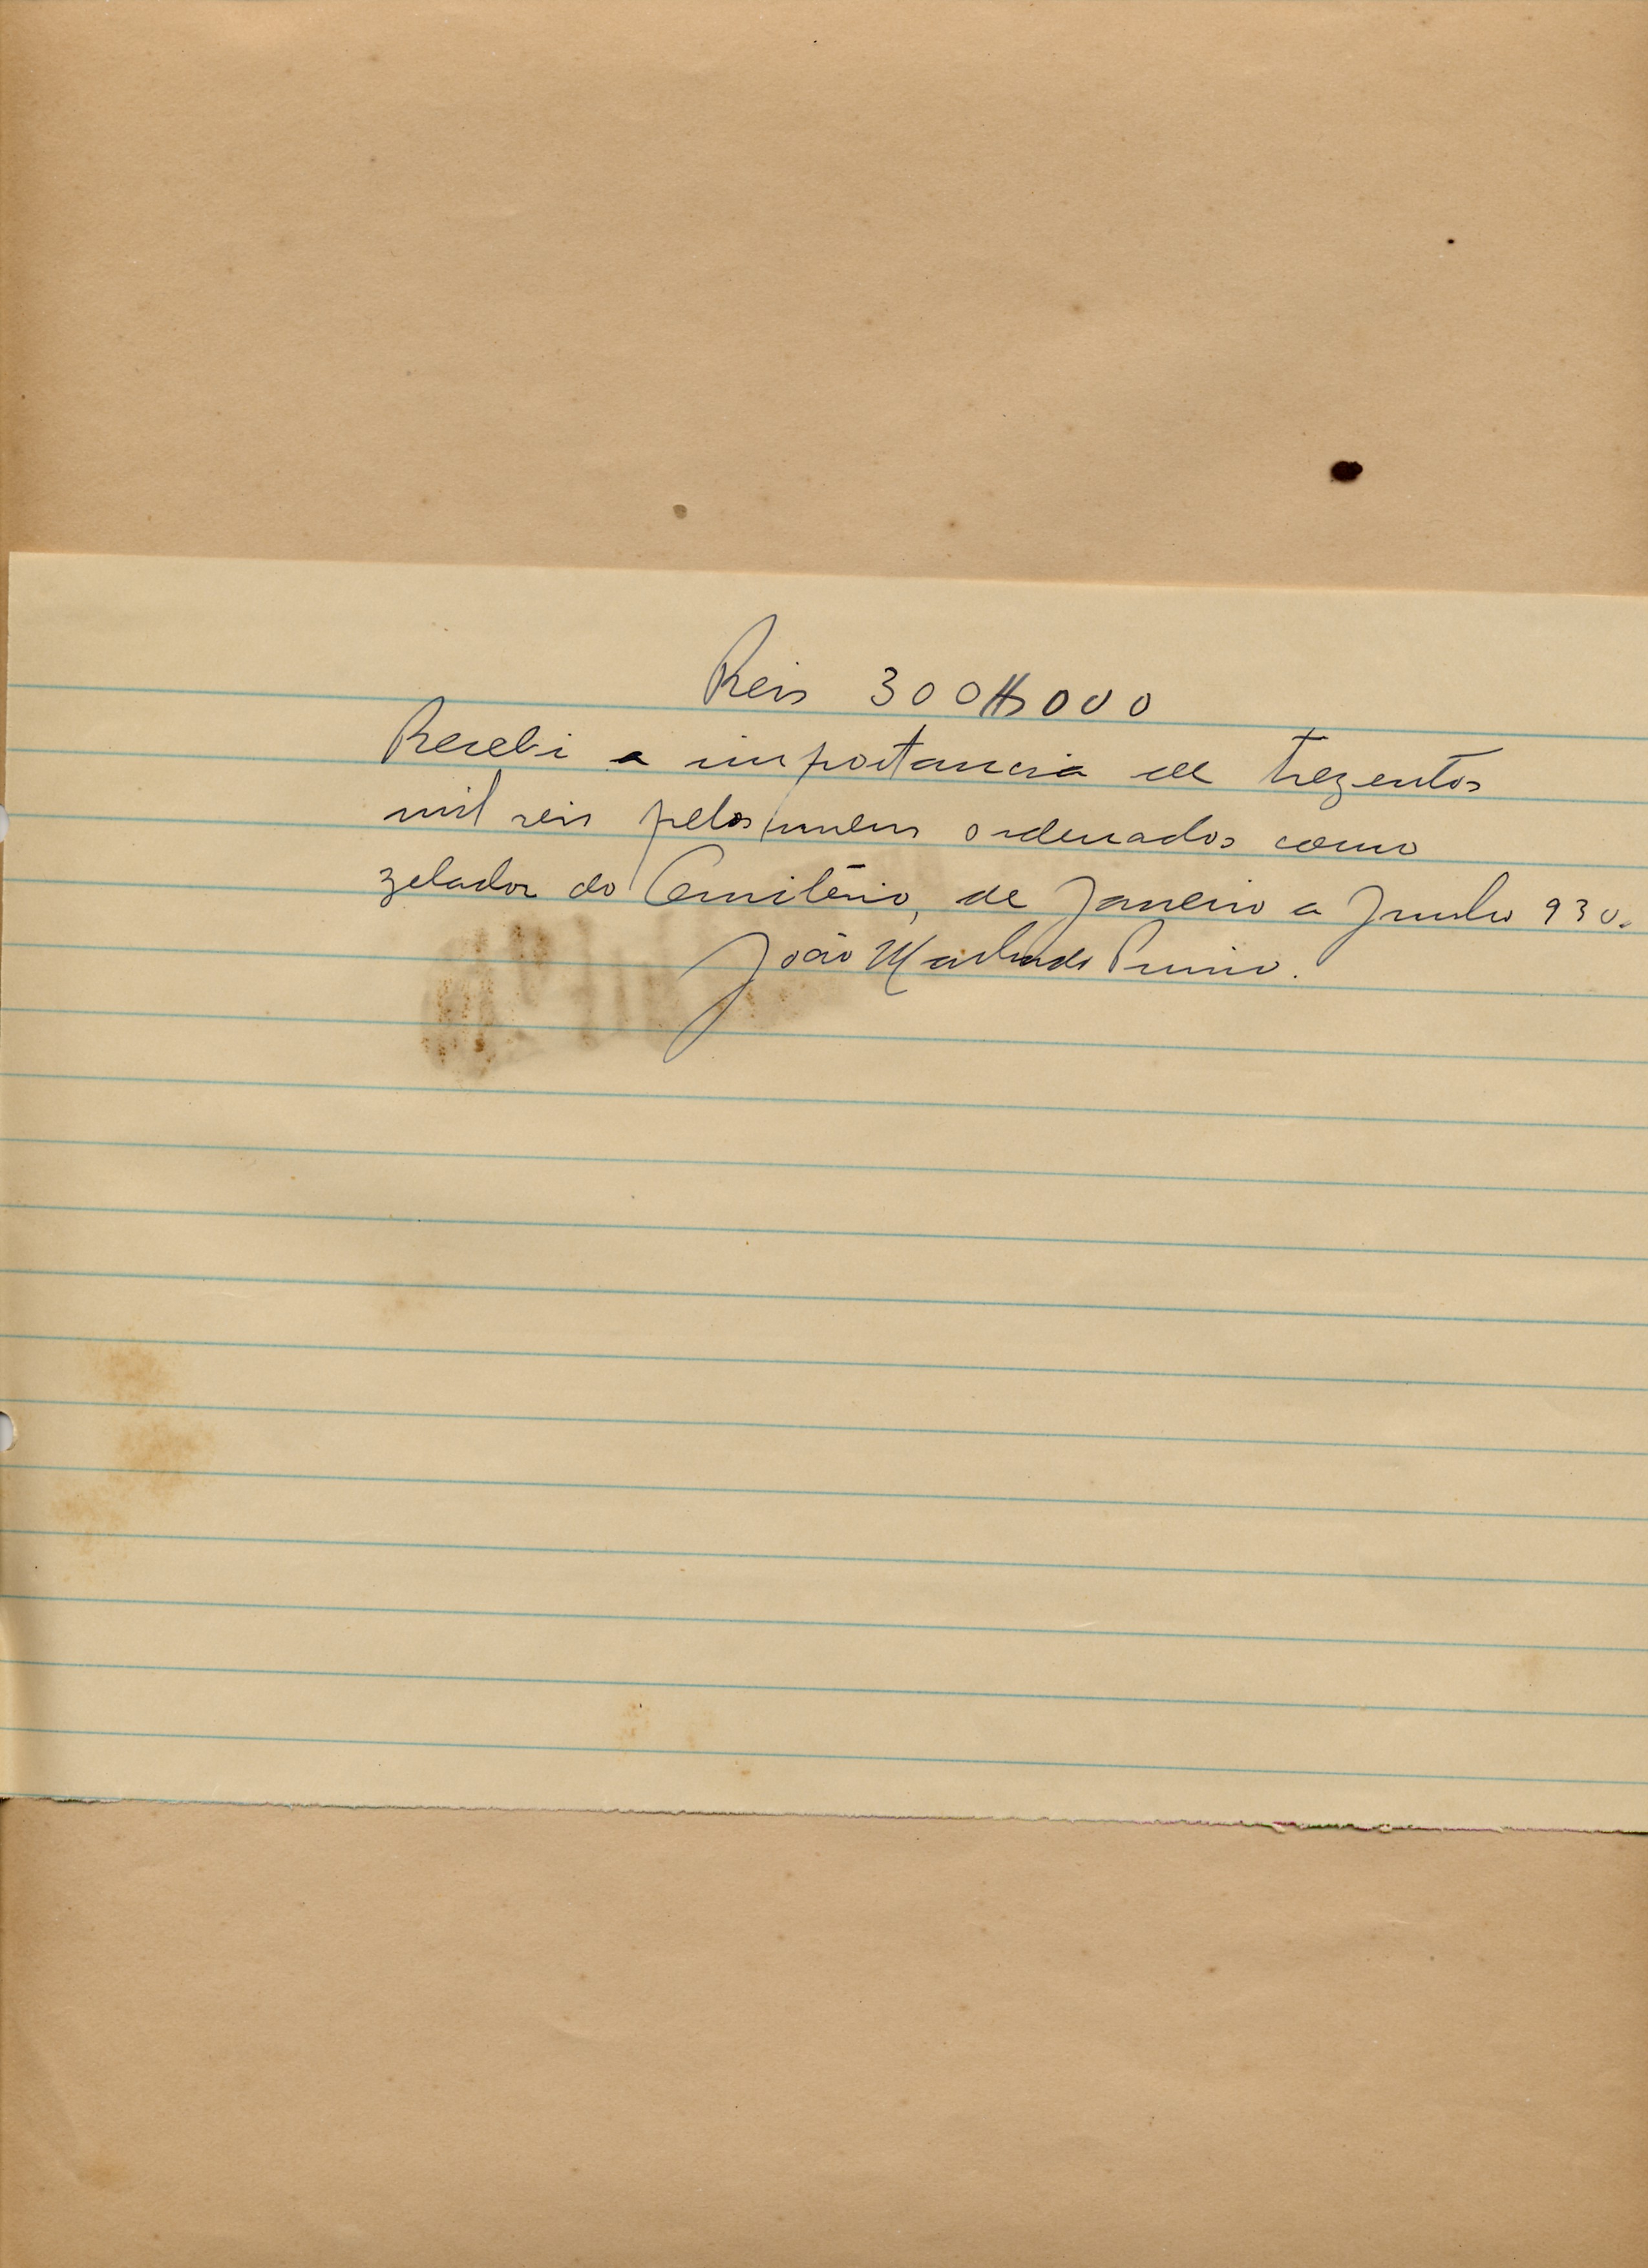 Reis 300$000
Recebi a importancia de trezentos
mil reis pelos meus ordenados como
zelador do Cemitério, de Janeiro a Junho 930.
João Machado